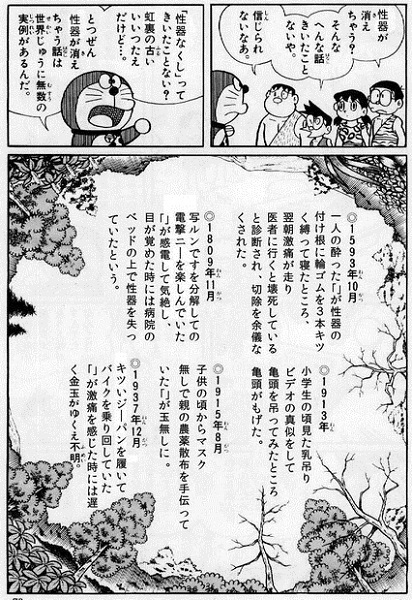 性器が
消え
ちゃう?
そんな
へんな話
きいたこと
ないや。
信じられ
ないなあ。
「性器なくし」って
きいたことない?
虹裏の古い
いいつたえ
だけど…。
とつぜん
性器が消え
ちゃう話は
世界じゅうに無数の
実例があるんだ。
◎1593年10月
一人の酔った「」が性器の
付け根に輪ゴムを3本キツ
く縛って寝たところ、
翌朝激痛が走り
医者に行くと壊死している
と診断され、切除を余儀な
くされた。
◎1913年
小学生の頃見た乳吊り
ビデオの真似をして
亀頭を吊ってみたところ
亀頭がもげた。
◎1809年11月
写ルンですを分解しての
電撃ニーを楽しんでいた
「」が感電して気絶し、
目が覚めた時には病院の
ベッドの上で性器を失っ
ていたという。
◎1915年8月
子供の頃からマスク
無しで親の農薬散布を手伝って
いた「」が玉無しに。
◎1937年12月
キツいジーパンを履いて
バイクを乗り回していた
「」が激痛を感じた時には遅
く金玉がゆくえ不明。